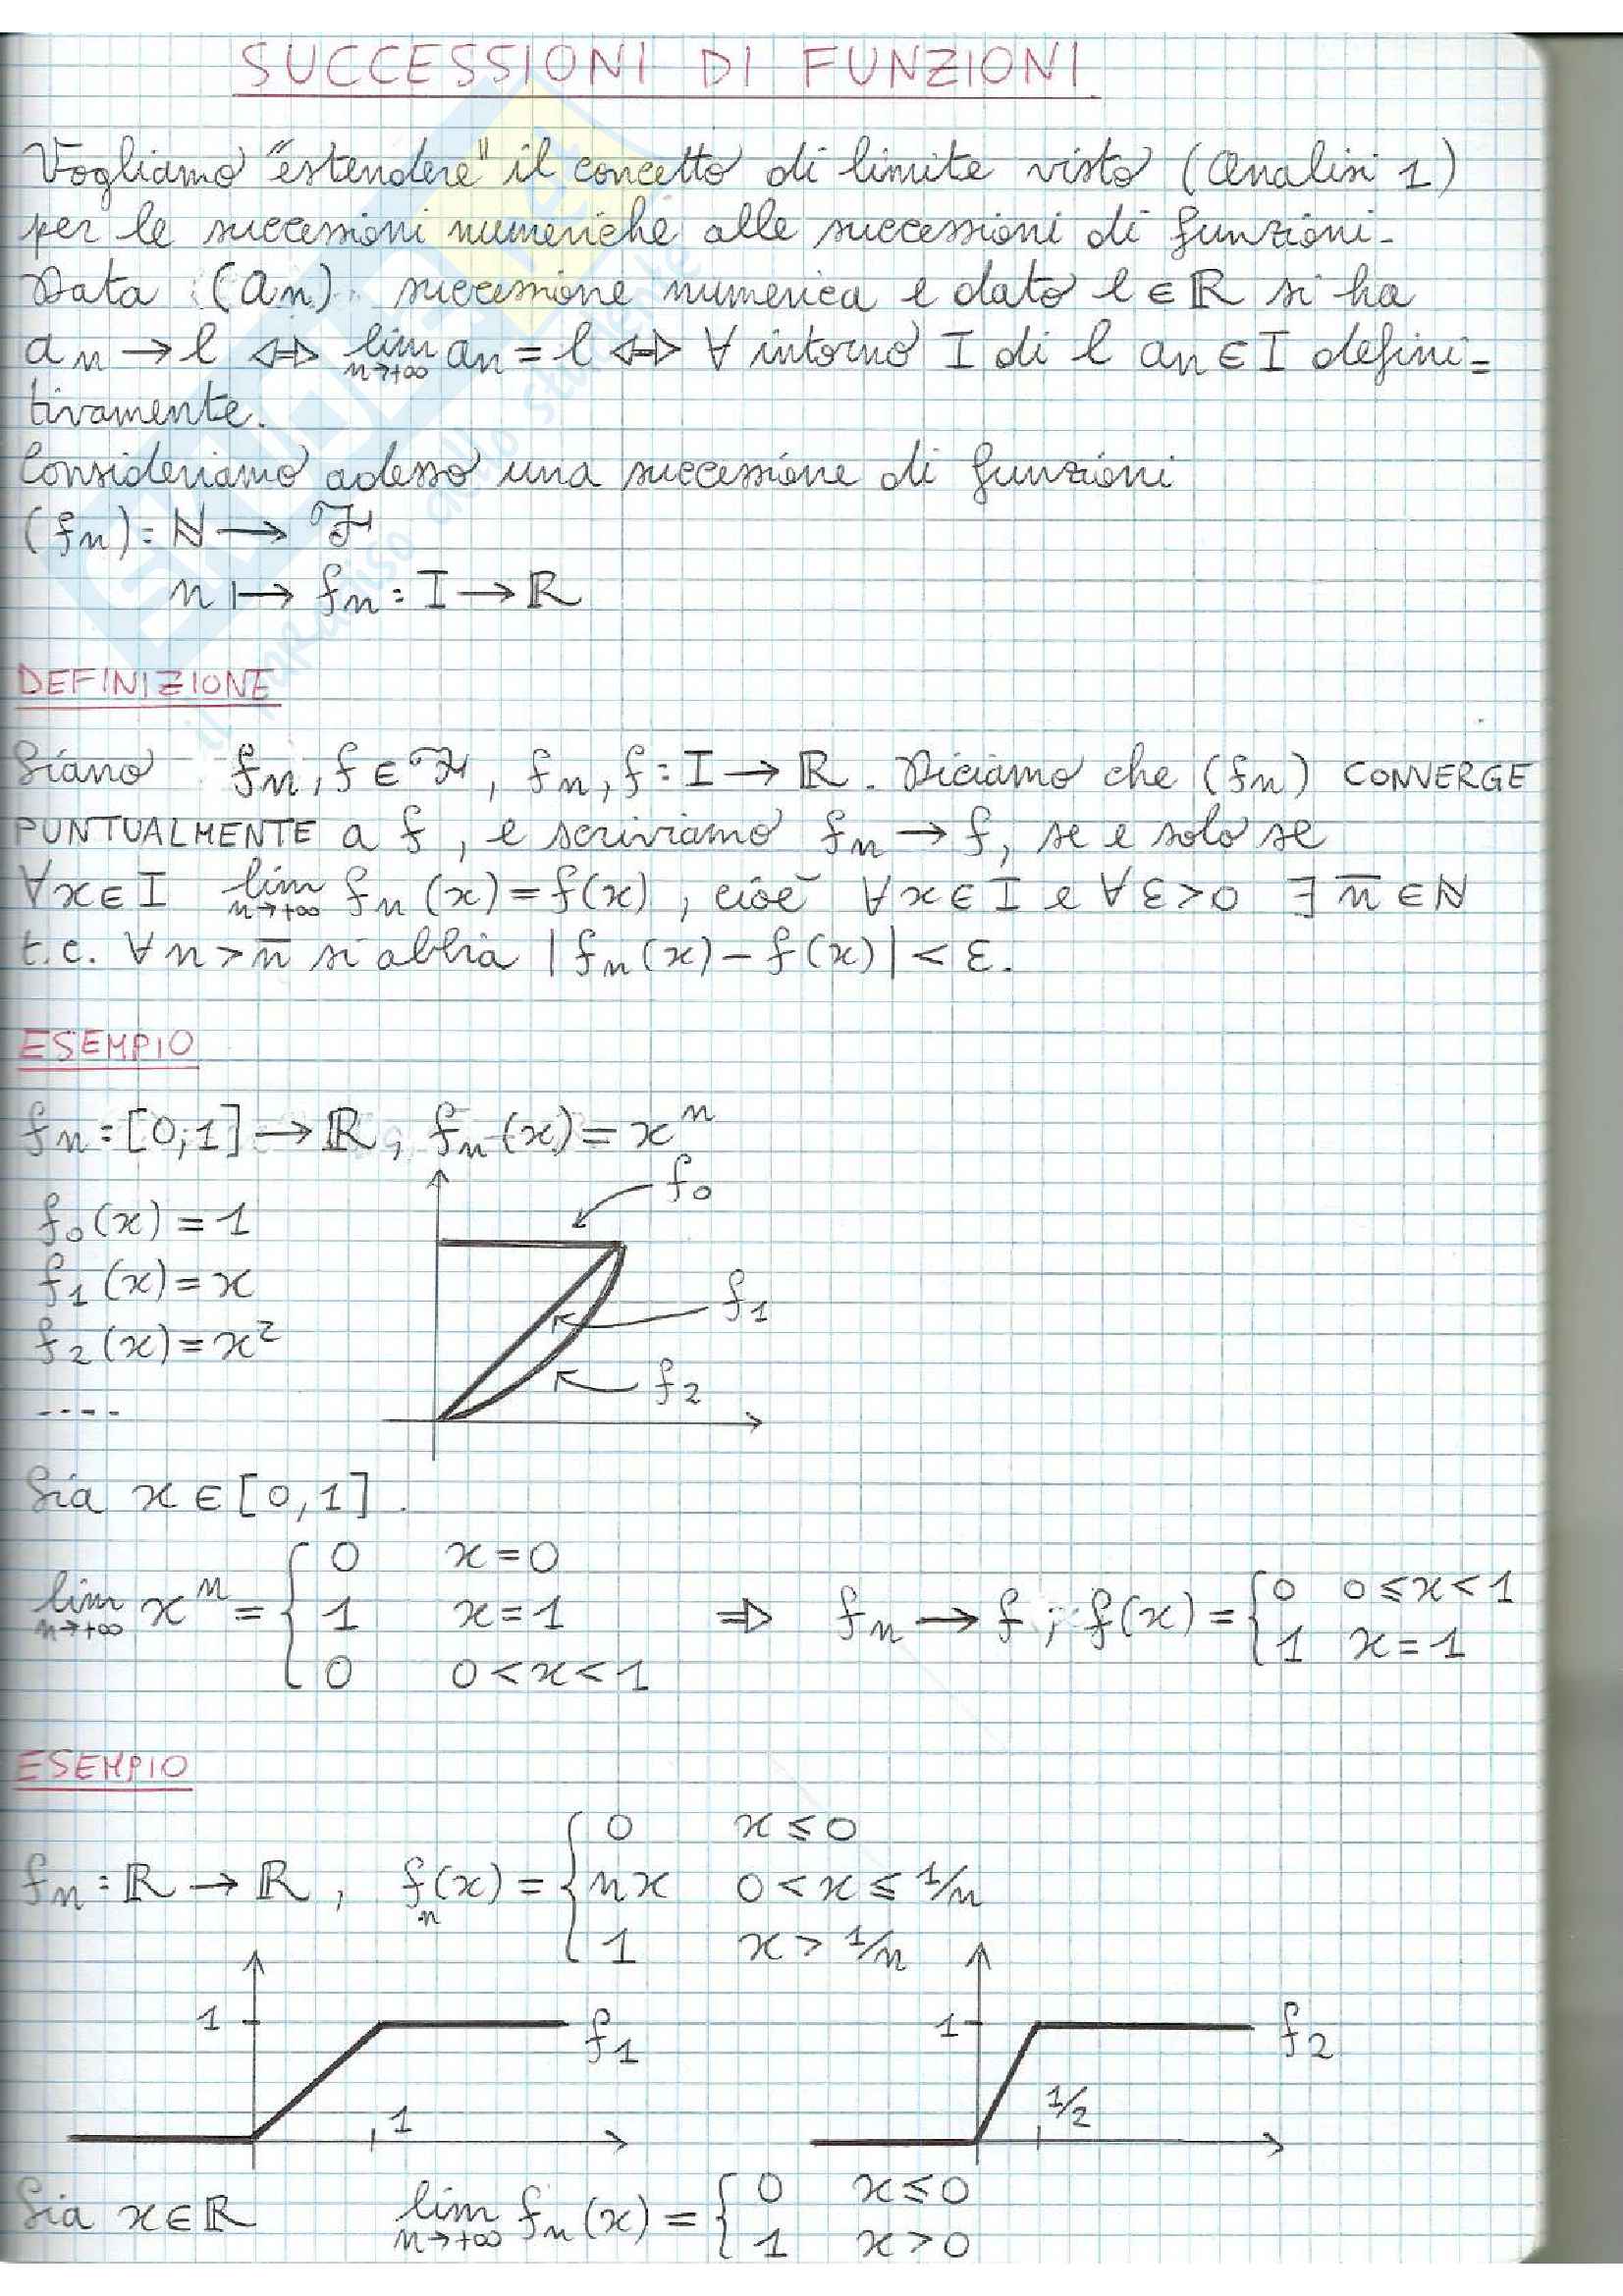 SUCCESSIONI DI FUNZIONI
Vogliamo "estendere" il concetto di limite visto (Analisi 1)
per le successioni numeriche alle successioni di funzioni.
Data (an) successione numerica e dato l ∈ ℝ si ha
an → l ⇔ lim n→+∞ an = l ⇔ ∀ intorno I di l an ∈ I defini=
tivamente.
Consideriamo adesso una successione di funzioni
(fn): ℕ → ℱ
n ↦ fn : I → ℝ
DEFINIZIONE
Siano fn, f ∈ ℱ, fn, f : I → ℝ. Diciamo che (fn) CONVERGE
PUNTUALMENTE a f, e scriviamo fn → f, se e solo se
∀x ∈ I lim n→+∞ fn(x) = f(x), cioè ∀x ∈ I e ∀ε > 0 ∃ n̄ ∈ ℕ
t.c. ∀n > n̄ si abbia |fn(x) - f(x)| < ε.
ESEMPIO
fn : [0,1] → ℝ, fn(x) = xⁿ
f0
f0(x) = 1
f1(x) = x
f1
f2(x) = x²
f2
----
Sia x ∈ [0,1].
lim n→+∞ xⁿ = { 0 x=0
1 x=1
0 0<x<1
⇒ fn → f ; f(x) = { 0 0≤x<1
1 x=1
ESEMPIO
fn : ℝ → ℝ, fn(x) = { 0 x≤0
nx 0<x≤1/n
1 x>1/n
1 f1 1
1 f2 1/2
Sia x ∈ ℝ lim n→+∞ fn(x) = { 0 x≤0
1 x>0
SKUOLA.net
il paradiso dello studente